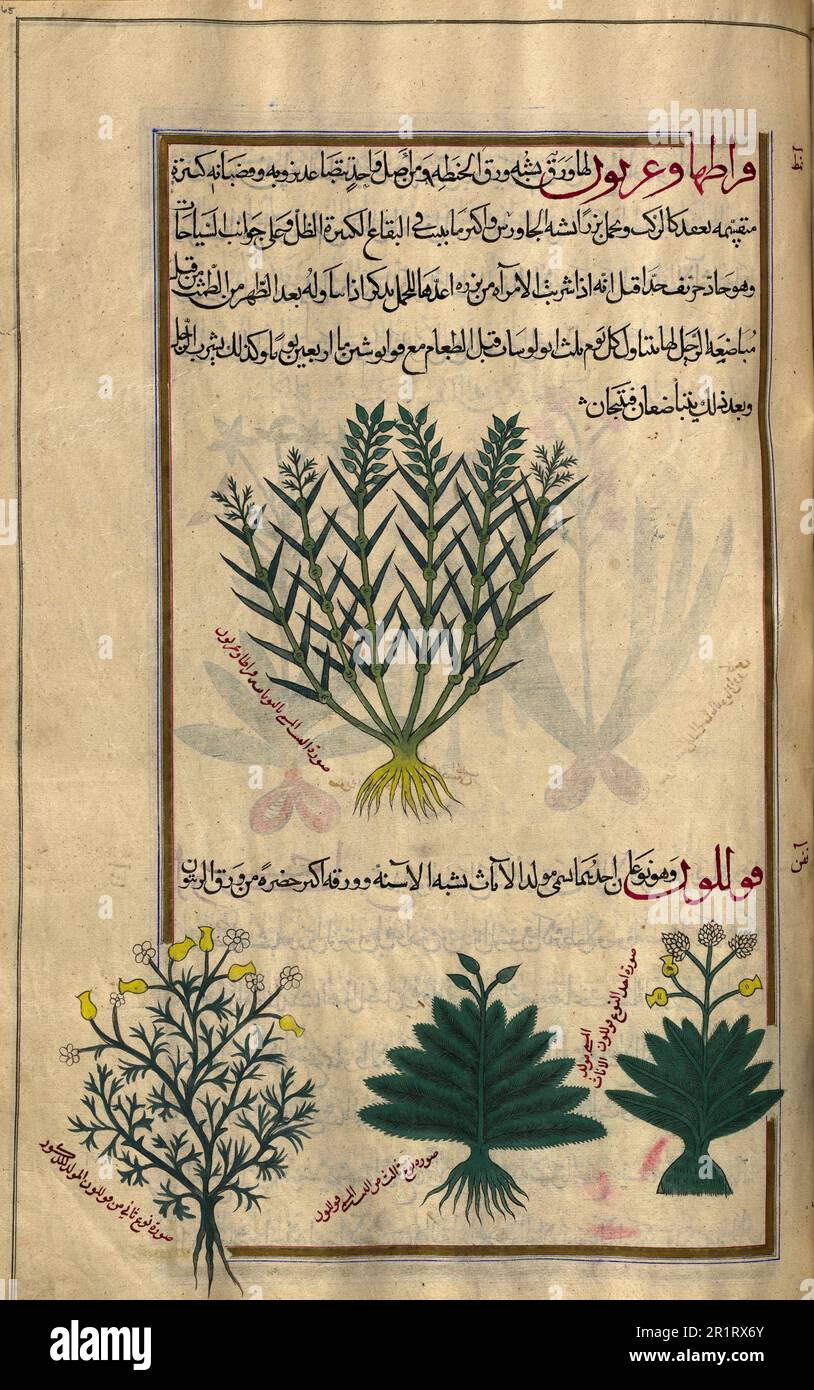 قراطاوغربون لها ورق يشبه ورق الحنطة ومن أصل واحد يتصاعد بزوبه وقضبانه كثيرة
منقسمه بعقد كالرك ويحمل بزرا يشبه الجاورس واكثر ما ينبت في البقاع الكثيرة الظل وعلى جوانب السياجات
وهو حاد حريف جدا قيل انه اذا شربت الامرأه من بزره اعدها للحمل بذكر اذا تناوله بعد الطهر من الطمث من قبل
مباضعة الرجل لها يتناول كل يوم ثلث ابولوسات قبل الطعام مع قوابوشين ما اربعين يوما وكذلك يشرب الرجل
وبعد ذلك يتباضعان فينجان
صورة العشب المسمى باليونانيه قراطاوغربون
فوللون وهو نوعان احديهما سمى مولد الاناث يشبه الاشنه وورقه اكثر خضرة من ورق الزيتون
صورة احد النوع فوللون
المسمى مولد الاناث
صورة نوع ثالث من العشب المسمى فوللون
صورة نوع ثاني من فوللون المولد للذكور
65
alamy
Image ID: 2R1RX6Y
www.alamy.com